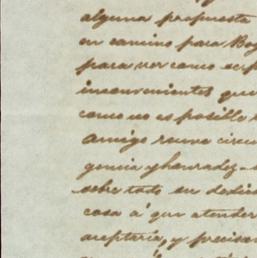 alguna propuesta
en camino para Bog
para ver como se
inconvenientes que
como no es posible
amigo reuna circu
gencia y honradez
sobre todo su dedic
casa á que atender
aceptaria, y precisa